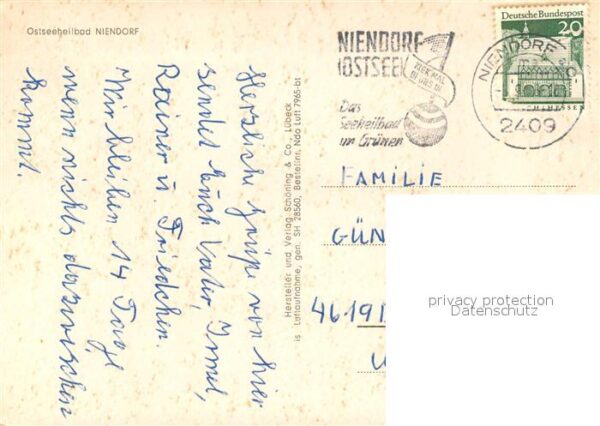 Ostseeheilbad NIENDORF
Herzliche Grüße von hier
sendet Euch Vater, Irmel,
Rainer u. Friedchen.
Wir bleiben 14 Tage
wenn nichts dazwischen
kommt.
Hersteller und Verlag Schöning & Co., Lübeck
is Luftaufnahme, gen. SH 28560, Bestellnr. Ndo Luft 7965-bt
NIENDORF
(OSTSEE)
Das
Seeheilbad
im Grünen
Deutsche Bundespost
20
NIENDORF
2409
FAMILIE
GÜN
4619
privacy protection
Datenschutz